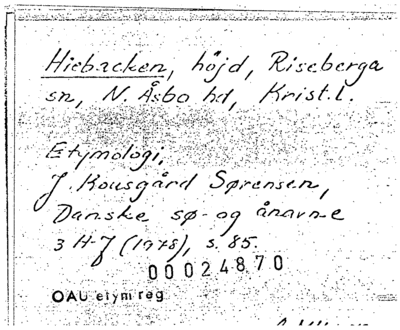 Hiebacken, höjd, Riseberga
sn, N. Åsbo hd, Krist. l.
Etymologi,
J. Kousgård Sørensen,
Danske sø- og ånavne
3 H-J (1978), s. 85.
00024870
OAU etym reg